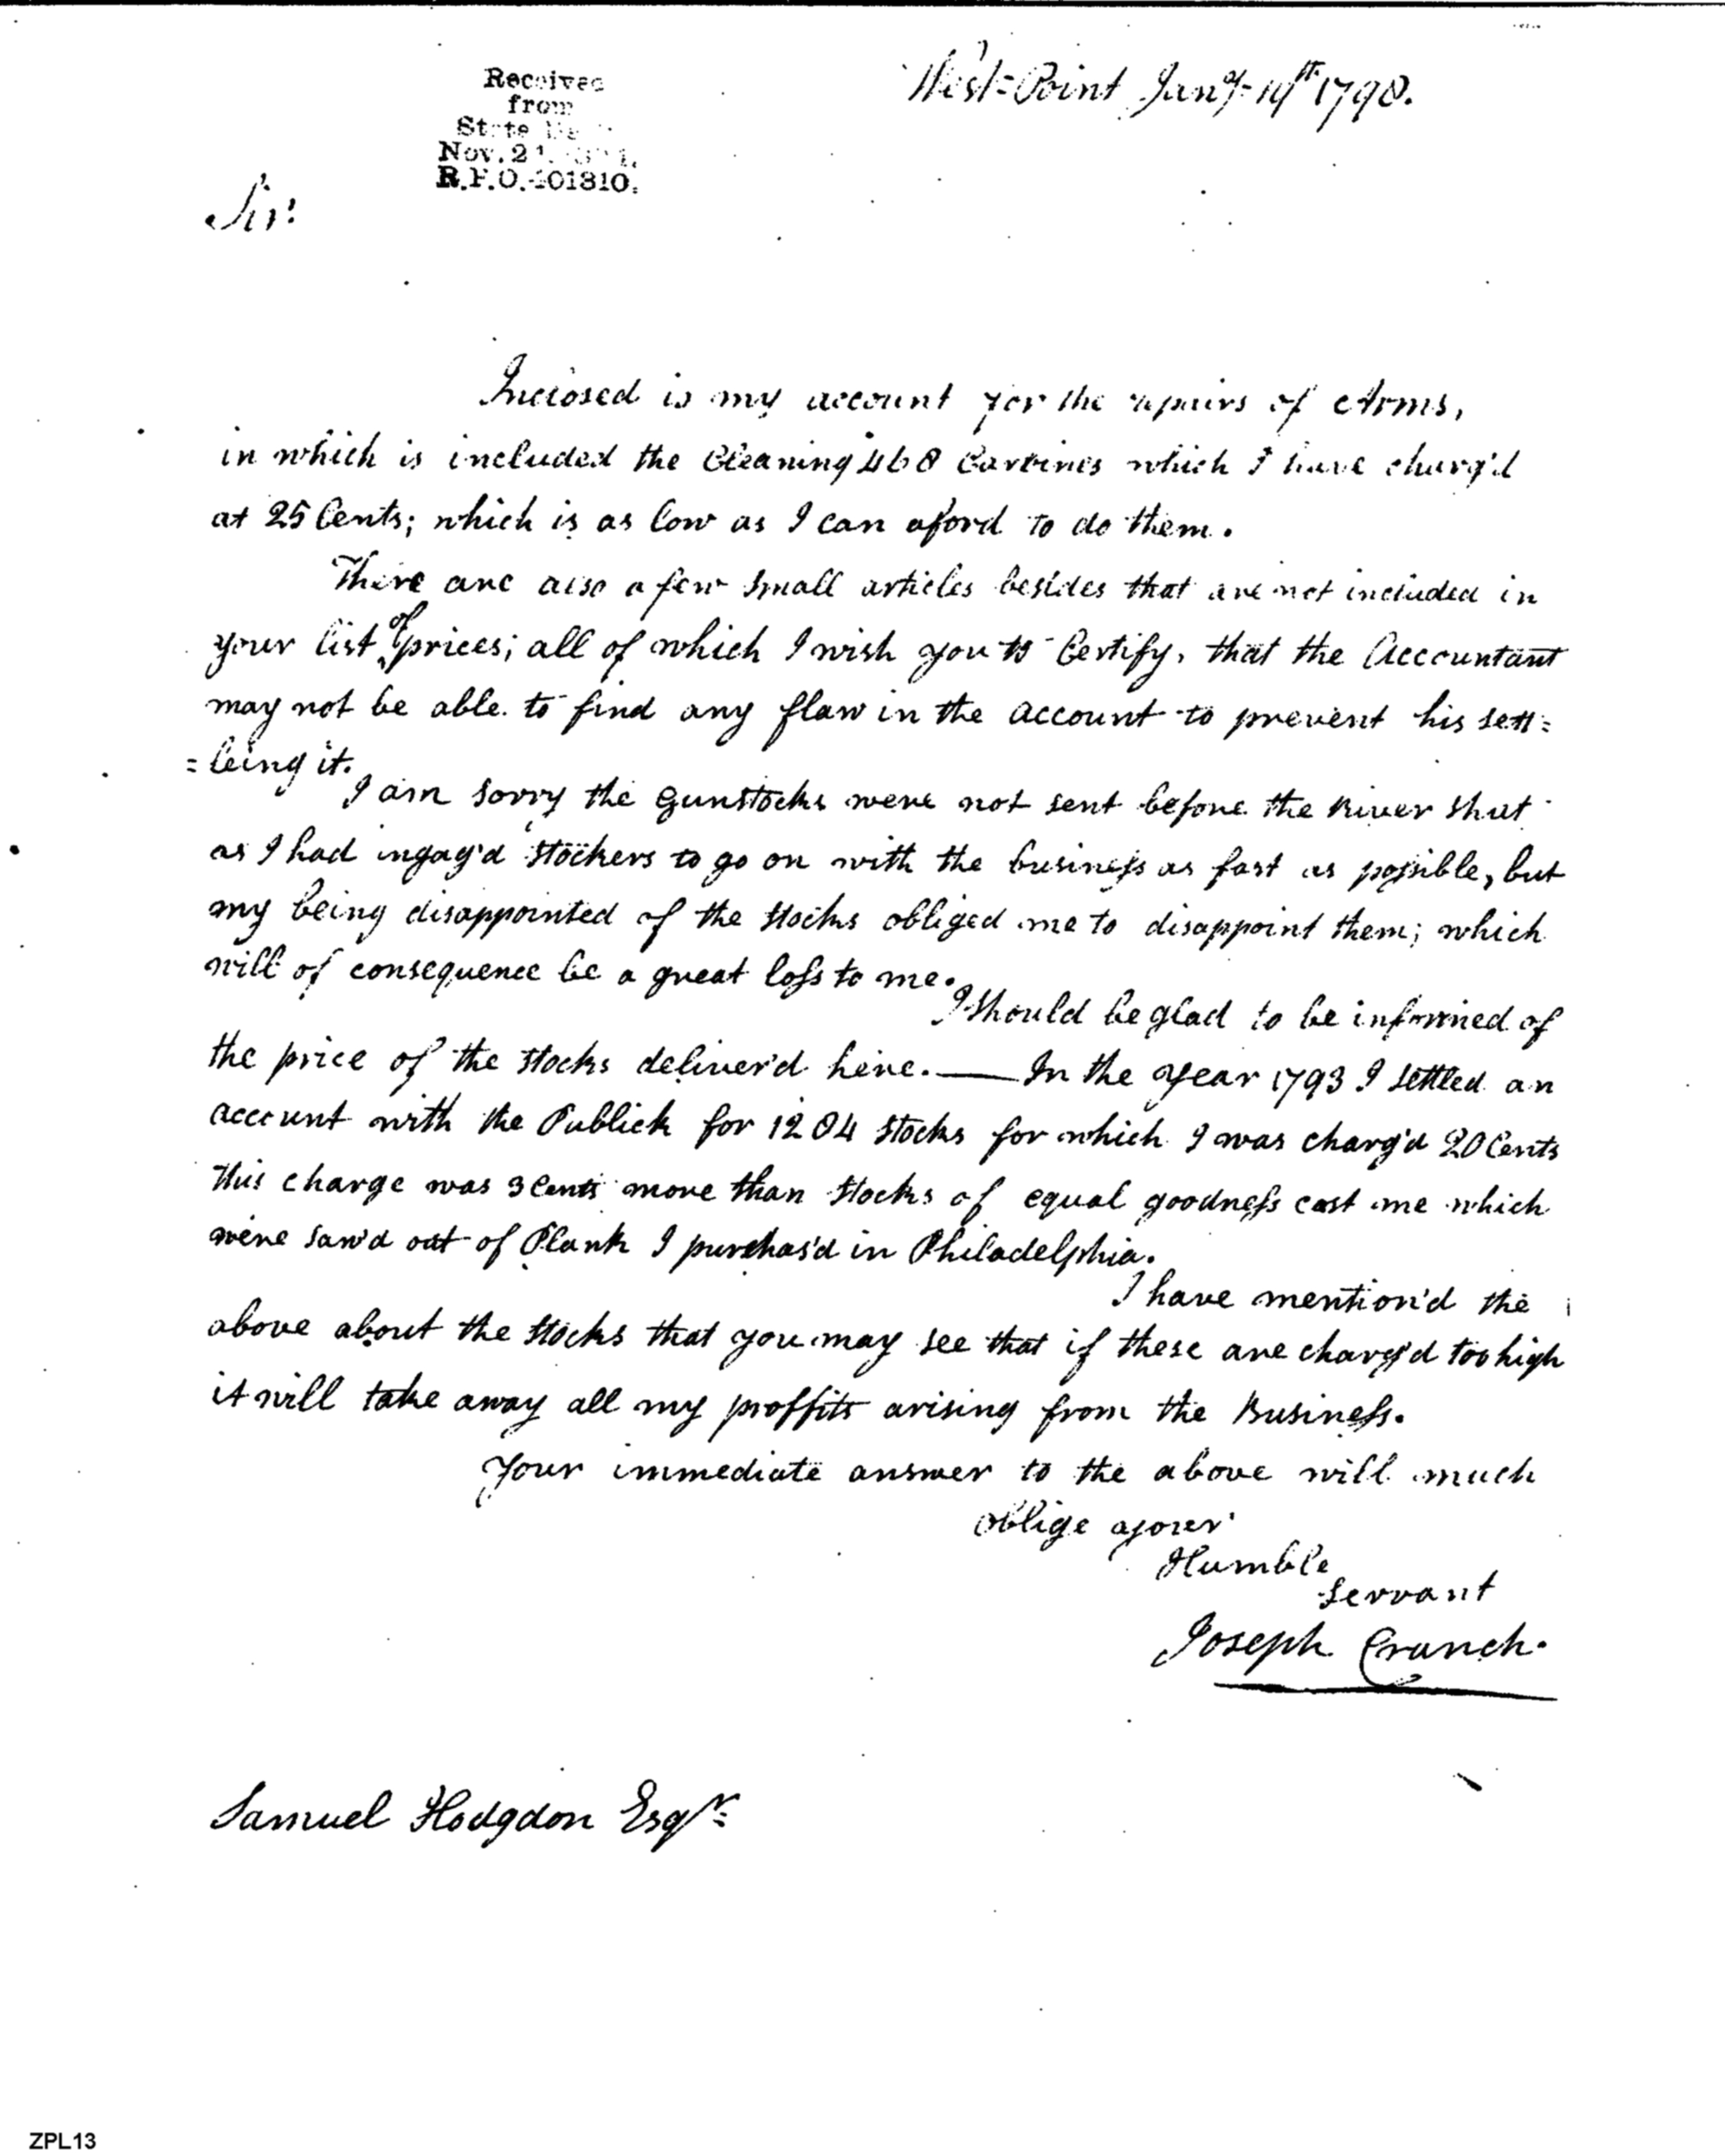 West-Point Jany. 19th 1798.
Received
from
State
Nov. 21
R.P.O. 401310.
Sir!
Inclosed is my account for the repairs of Arms,
in which is included the Cleaning 468 Carbines which I have charg'd
at 25 Cents; which is as low as I can aford to do them.
There are also a few small articles besides that are not included in
your list of prices; all of which I wish you to Certify, that the Accountant
may not be able to find any flaw in the account to prevent his sett=
=leing it.
I am sorry the Gunstocks were not sent before the River shut
as I had ingag'd Stockers to go on with the business as fast as possible, but
my being disappointed of the stocks obliged me to disappoint them; which
will of consequence be a great loss to me.
I should be glad to be informed of
the price of the stocks deliver'd here. — In the year 1793 I settled an
account with the Publick for 1284 stocks for which I was charg'd 20 Cents
this charge was 3 Cents more than stocks of equal goodness cost me which
were saw'd out of Plank I purchas'd in Philadelphia.
I have mention'd the
above about the stocks that you may see that if these are charg'd too high
it will take away all my proffits arising from the Business.
Your immediate answer to the above will much
oblige your
Humble
servant
Joseph Cranch.
Samuel Hodgdon Esqr.
ZPL13